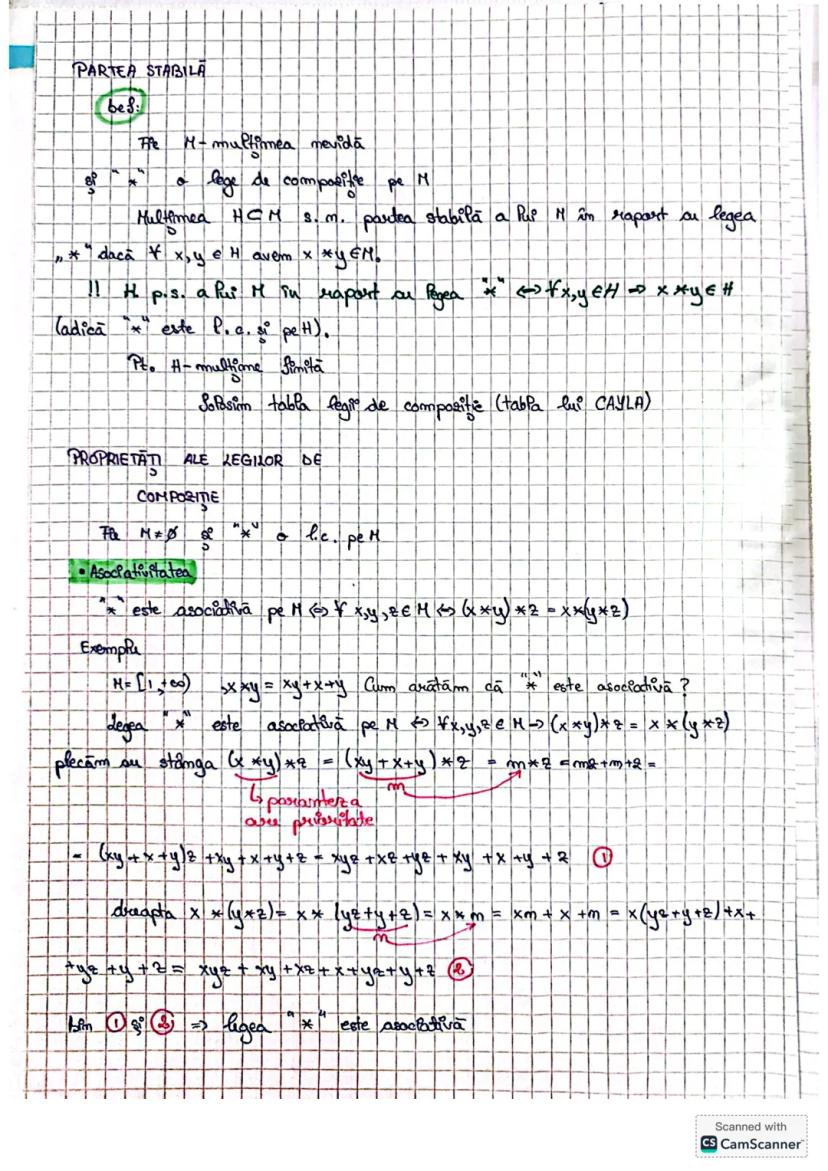 PARTEA STABILĂ
Def:
Fie M - mulțimea nevidă
și "*" o lege de compoziție pe M
Mulțimea H⊂M s.m. partea stabilă a lui M în raport cu legea
„*" dacă ∀ x,y ∈ H avem x *y∈M.
!! H p.s. a lui M în raport cu legea "*" ⇔ ∀x,y∈H ⇒ x *y∈H
(adică "*" este l.c. și pe H).
Pt. H - mulțime finită
folosim tabla legii de compoziție (tabla lui CAYLA)
PROPRIETĂȚI ALE LEGILOR DE
COMPOZIȚIE
Fie M≠∅ și "*" o l.c. pe M
• Asociativitatea
"*" este asociativă pe M ⇔ ∀ x,y,z∈ M ⇔ (x *y) *z = x*(y*z)
Exemplu
M= [1,+∞) , x*y = xy+x+y Cum arătăm că "*" este asociativă?
Legea "*" este asociativă pe M ⇔ ∀x,y,z ∈ M ⇒ (x *y)*z = x *(y*z)
plecăm cu stânga (x *y)*z = (xy+x+y) *z = m*z = mz+m+z =
m
↳ paranteza
are prioritate
= (xy+x+y)z +xy+x+y+z = xyz +xz +yz + xy +x +y +z ①
dreapta x *(y*z)= x * (yz+y+z) = x*m = xm + x +m = x(yz+y+z)+x+
n
+yz +y +z = xyz + xy +xz +x+yz+y+z ②
Din ① și ② ⇒ legea "*" este asociativă
Scanned with
CS CamScanner